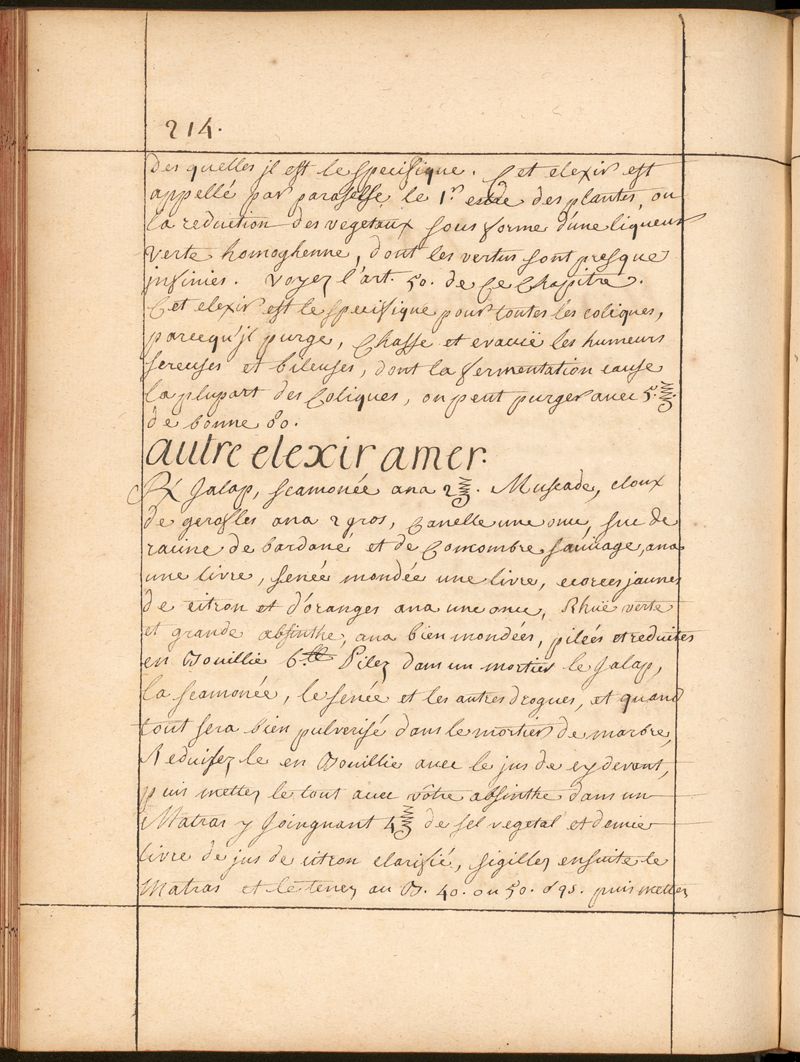 214.
des quelles jl est le specifique. Cet elexir est
appellé par paraselse le 1.r ende des plantes, ou
la reduction des vegetaux sous forme d'une liqueur
verte homoghenne, dont les vertus sont presque
jnfinies. Voyez l'art. 50. de Ce Chapitre.
Cet elexir est le specifique pour toutes les coliques,
parcequ'jl purge, Chasse et evacüe les humeurs
sereuses et bileuses, dont la fermentation cause
la plupart des Coliques, on peut purger avec 5.
de bonne
autre elexir amer.
Jalap, scamonée ana 2 Muscade, cloux
de gerofles ana 2 gros, Canelle une once, suc de
racine de bardane et de Concombre sauuage, ana
une livre, senée mondée une livre, ecorces jaunes
de citron et d'oranges ana une once, Rhuë verte
et grande absinthe, ana bien mondées, pilées et reduites
en Bouillie 6.tt Pilez dans un mortier le Jalap,
la scamonée, le senée et les autres drogues, et quand
tout sera bien pulverisé dans le mortier de marbre,
Reduisez le en Bouillie avec le jus de cydevant,
puis mettez le tout avec vôtre absinthe dans un
Matras y Joingnant 4 de sel vegetal et demie
livre de jus de citron clarifié, sigillez ensuite le
Matras et le tenez au B. 40. ou 50. puis mettez